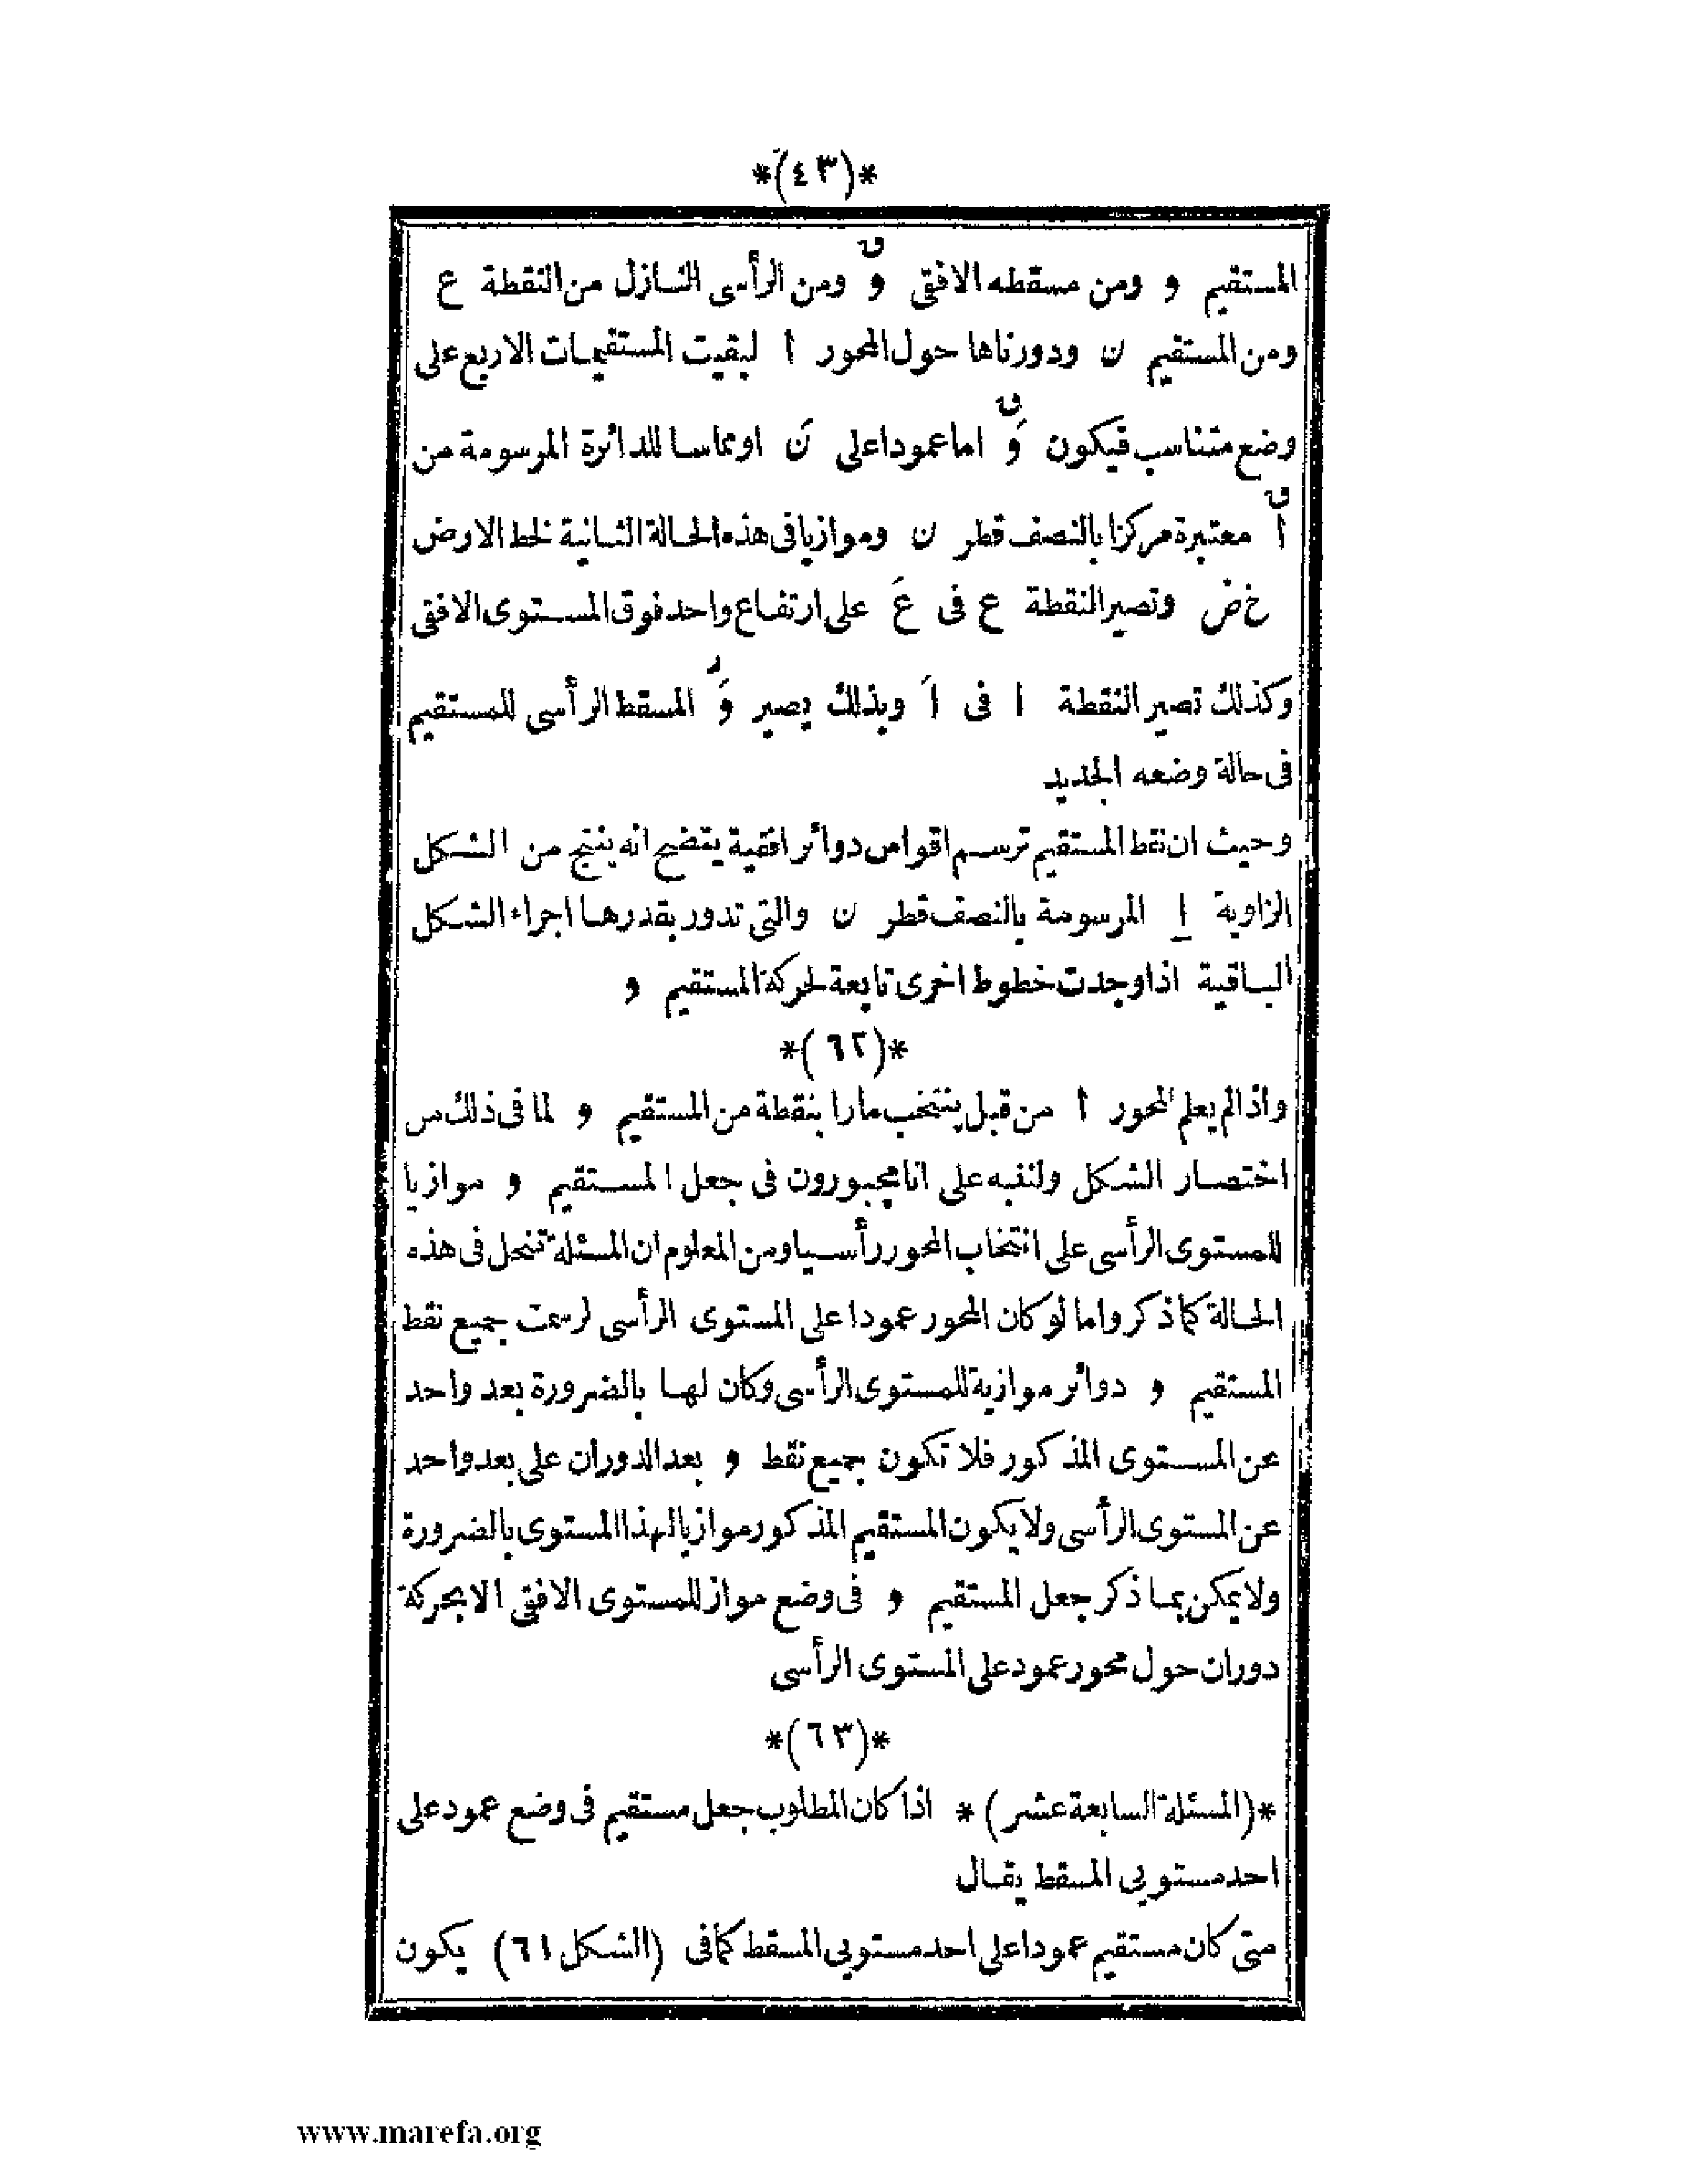 *(٤٣)*
المستقيم و ومن مسقطه الافقى وق ومن الرأسى النازل من النقطة ع
ومن المستقيم ن ودورناها حول المحور أ لبقيت المستقيمات الاربع على
وضع متناسب فيكون وَق اما عمودا على نَ او مماسا للدائرة المرسومة من
أق معتبرة مركزا بالنصف قطر ن وموازيا فى هذه الحالة الثانية لخط الارض
خ ض وتصير النقطة ع فى عَ على ارتفاع واحد فوق المستوى الافقى
وكذلك تصير النقطة ا فى اَ وبذلك يصير وَر المسقط الرأسى للمستقيم
فى حالة وضعه الجديد
وحيث ان نقط المستقيم ترسم اقواس دوائر افقية يتضح انه ينتج من الشكل
الزاوية أ المرسومة بالنصف قطر ن والتى تدور بقدرها اجراء الشكل
الباقية اذا وجدت خطوط اخرى تابعة لحركة المستقيم و
*(٦٢)*
واذا لم يعلم المحور أ من قبل ينتخب مارا بنقطة من المستقيم و لما فى ذلك من
اختصار الشكل ولننبه على انا مجبورون فى جعل المستقيم و موازيا
للمستوى الرأسى على انتخاب المحور رأسيا ومن المعلوم ان المسئلة تنحل فى هذه
الحالة كما ذكر واما لو كان المحور عمودا على المستوى الرأسى لرسمت جميع نقط
المستقيم و دوائر موازية للمستوى الرأسى وكان لها بالضرورة بعد واحد
عن المستوى المذكور فلا تكون جميع نقط و بعد الدوران على بعد واحد
عن المستوى الرأسى ولا يكون المستقيم المذكور موازيا لهذا المستوى بالضرورة
ولا يمكن بما ذكر جعل المستقيم و فى وضع مواز للمستوى الافقى الا بحركة
دوران حول محور عمود على المستوى الرأسى
*(٦٣)*
*(المسئلة السابعة عشر)* اذا كان المطلوب جعل مستقيم فى وضع عمود على
احد مستويى المسقط يقال
متى كان مستقيم عمودا على احد مستويى المسقط كما فى (الشكل ٦١) يكون
www.marefa.org